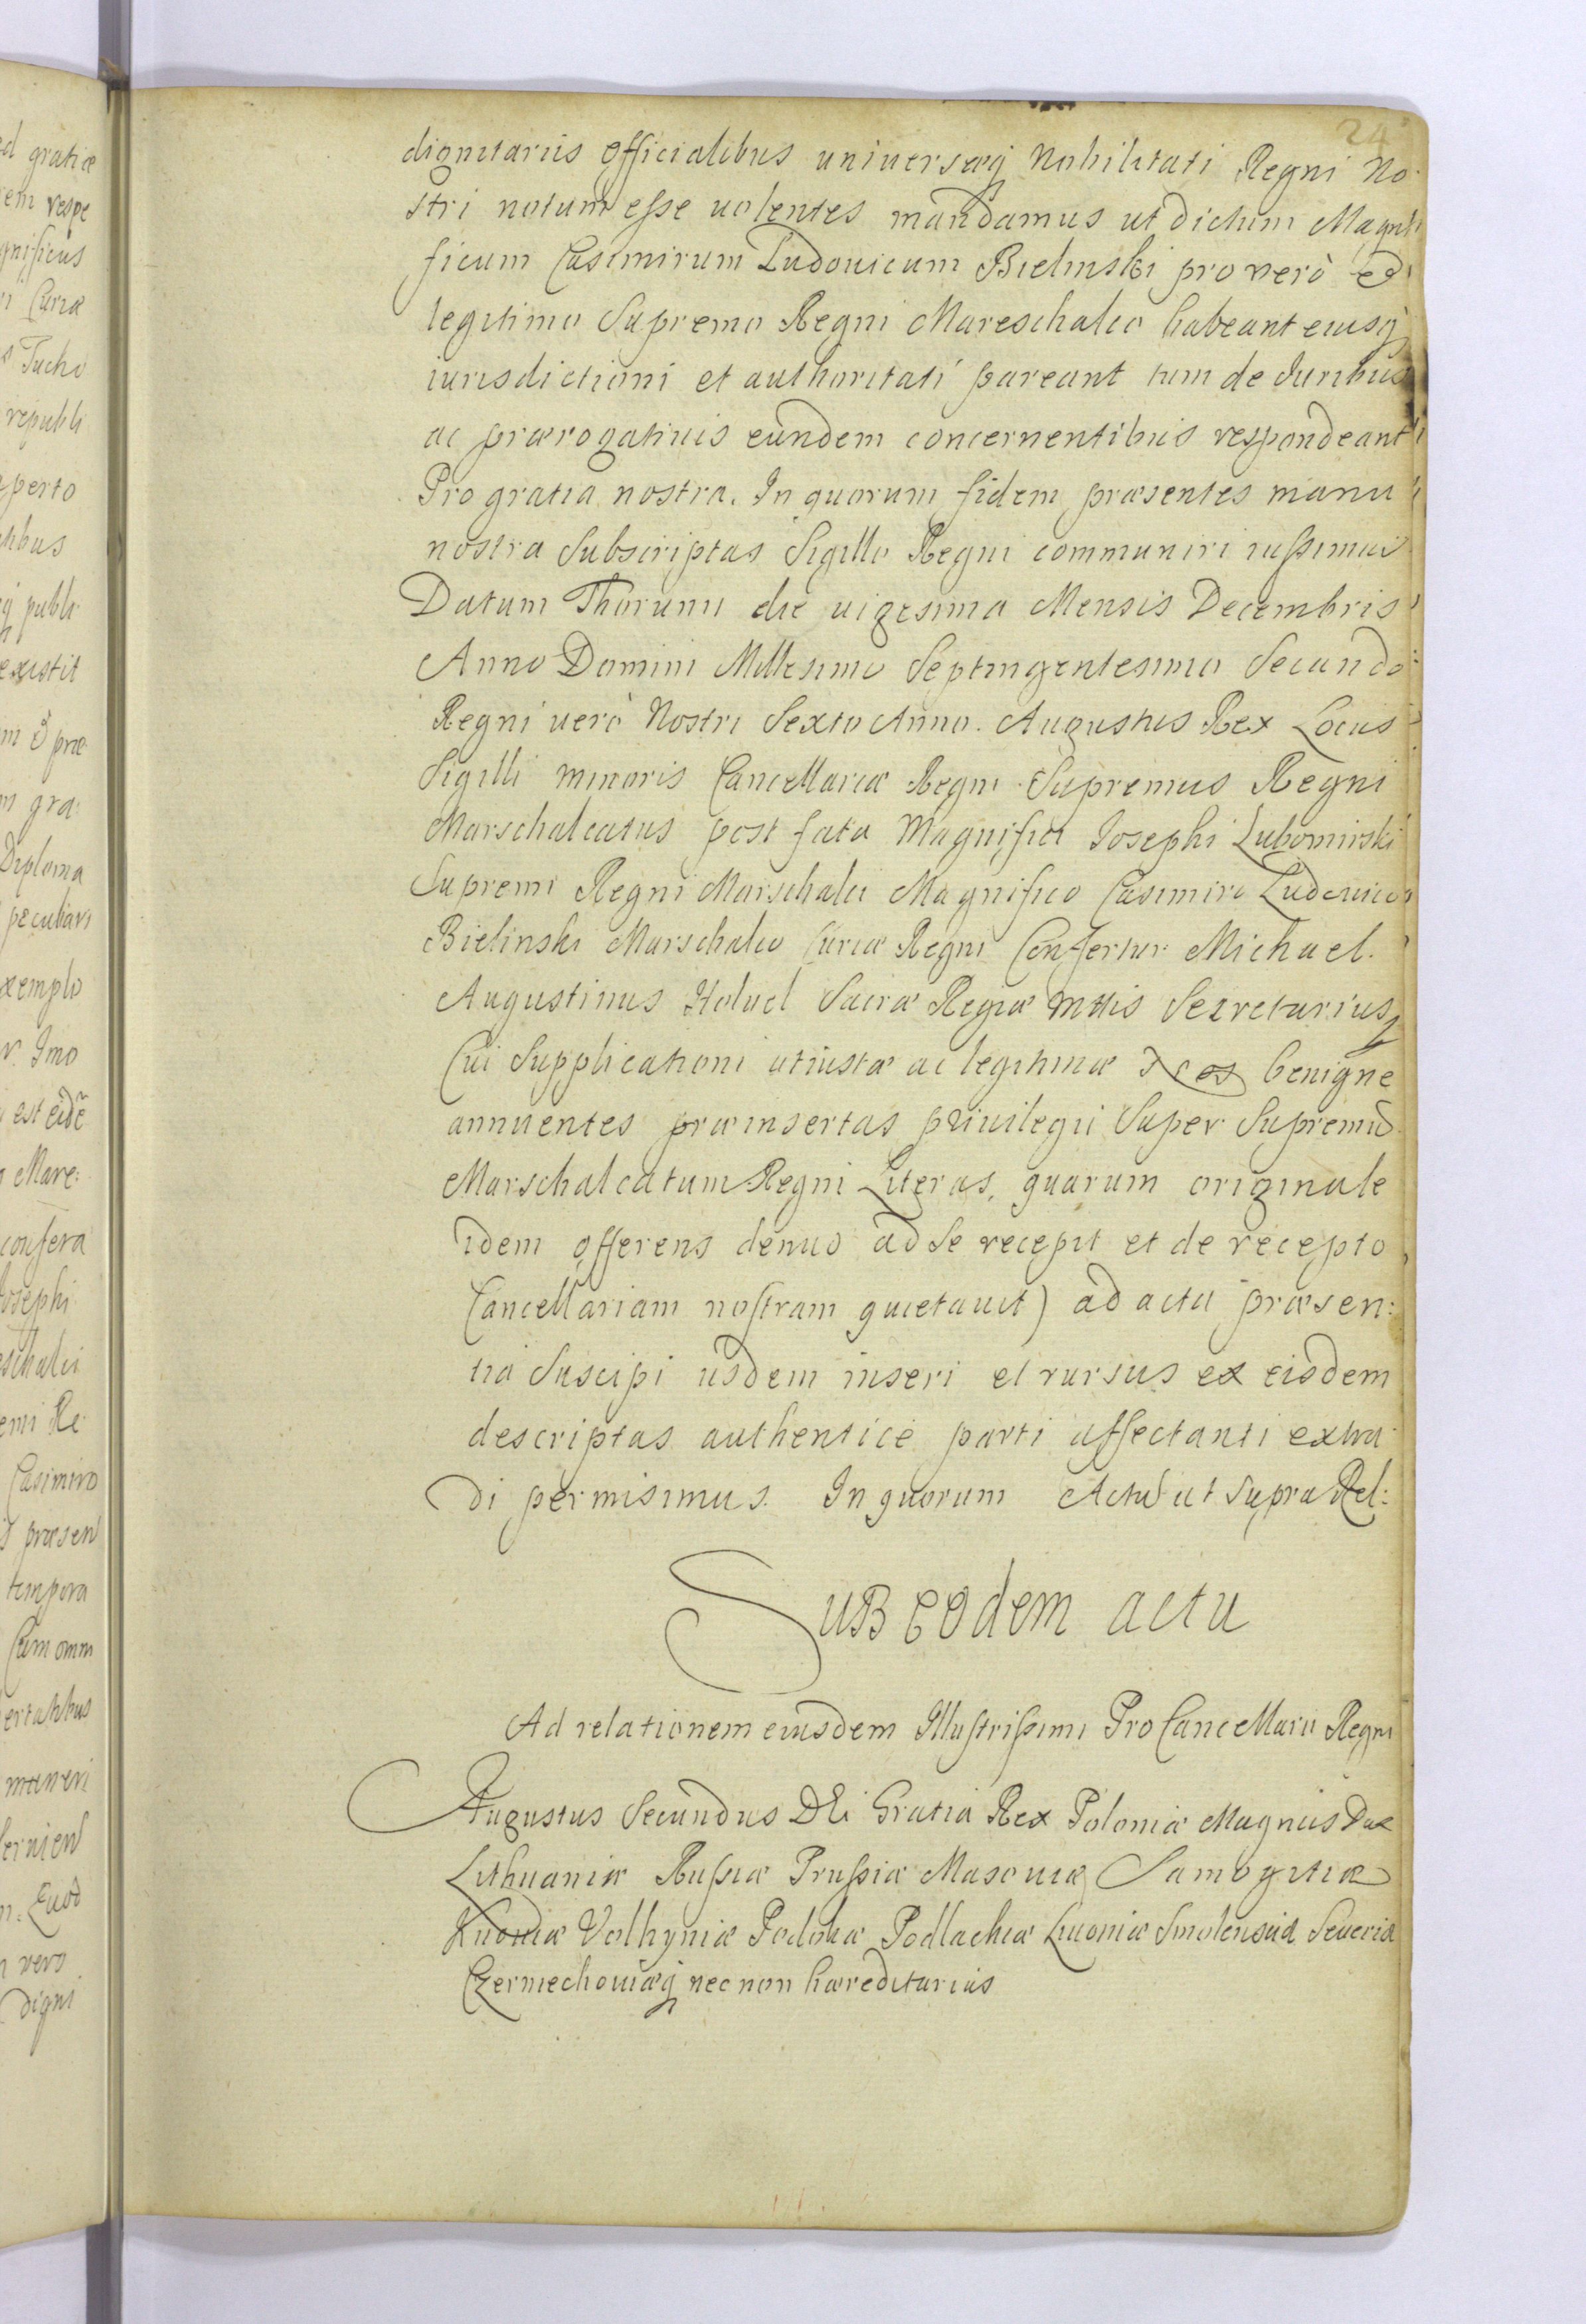 24
dignitariis officialibus universæq nobilitati Regni No-
stri notum esse uolentes mandamus ut dictum Magni
ficum Casimirum Ludouicum Bielinski pro vero et
legitimo Supremo Regni Mareschalco habeant eiusq
iurisdictioni et authoritati pareant tum de Iuribus
ac prærogatiuis eundem concernentibus respondeant
Pro gratia nostra. In quorum fidem præsentes manu
nostra Subscriptas Sigillo Regni communiri iussimus
Datum Thorunii die uigesima Mensis Decembris
Anno Domini Millesimo Septingentesimo Secundo
Regni uerò Nostri Sexto Anno. Augustus Rex Locus
Sigilli minoris Cancellariæ Regni Supremus Regni
Marschalcatus post fata Magnifici Iosephi Lubomirski
Supremi Regni Marschalci Magnifico Casimiro Ludouico
Bielinski Marschalco Curiæ Regni Confertur Michael
Augustinus Holuel Sacræ Regiæ Mttis Secretarius
Cui Supplicationi uti iustæ ac legitimæ benigne
annuentes præinsertas priuilegii Super Supremũ
Marschalcatum Regni Literas, quarum originale
idem offerens denuo ad Se recepit et de recepto
Cancellariam nostram quietauit) ad acta præsen:
tia Suscipi iisdem inseri et rursus ex eisdem
descriptas authenticè parti affectanti extra
di permisimus. In quorum Actũ ut Supra Rel:
SUB EOdem actu
Ad relationem eiusdem Illustrissimi ProCancellarii Regni
Augustus Secundus DEi Gratia Rex Poloniæ Magnus Dux
Lithuaniæ Russiæ Prussiæ Masouiæ Samogitiæ
Kiiouiæ Volhyniæ Podoliæ Podlachiæ Liuoniæ Smolensciæ Seueriæ
Czerniechouiæq nec non hæreditarius
d gratiæ
em respe
gnificus
Curiæ
Tucho
republi
perto
publi
existit
præ
gra:
Diploma
peculiari
xemplo
Imo
est eidẽ
Mare:
confera
Iosephi
schalci
Re
Casimiro
præsen
tempora
Cum omni
ertatibus
muneri
Quod
vero
digni